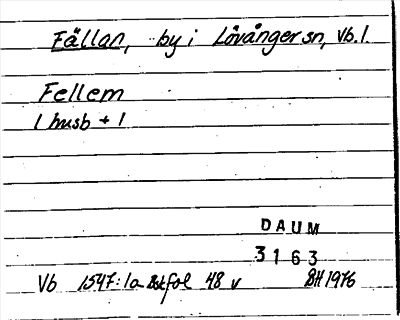 Fällan, by i Lövånger sn, Vb. l.
Fellem
1 husb + 1
DAUM
3163
Vb 1547:1a Bskfol 48 v BH 1976